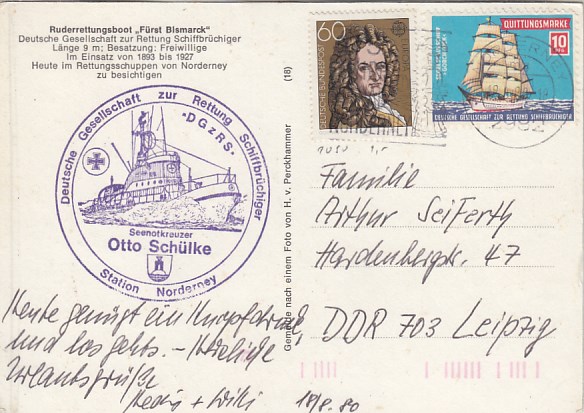 Ruderrettungsboot „Fürst Bismarck"
Deutsche Gesellschaft zur Rettung Schiffbrüchiger
Länge 9 m; Besatzung: Freiwillige
Im Einsatz von 1893 bis 1927
Heute im Rettungsschuppen von Norderney
zu besichtigen
(18)
Deutsche Gesellschaft zur Rettung Schiffbrüchiger
-DGzRS-
Seenotkreuzer
Otto Schülke
Station Norderney
Gemalde nach einem Foto von H. v. Perckhammer
60
DEUTSCHE BUNDESPOST
NORDERNEY
QUITTUNGSMARKE
10
DEUTSCHE GESELLSCHAFT ZUR RETTUNG SCHIFFBRÜCHIGER
2982
Familie
Arthur Seiferth
Hardenbergstr. 47
DDR 703 Leipzig
Heute genügt ein Knopfdruck
und los gehts. – Herzliche
Urlaubsgrüße
+ Willi
18/8. 80